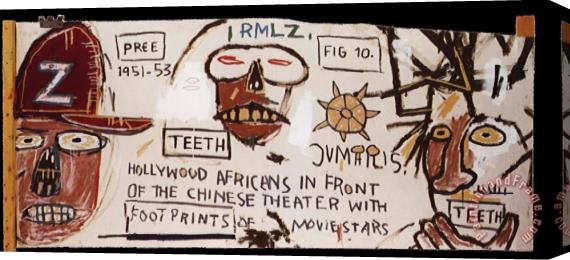 RMLZ.
PREE
1951-53
FIG 10.
Z
TEETH
JVMARIS.
HOLLYWOOD AFRICANS IN FRONT
OF THE CHINESE THEATER WITH
FOOTPRINTS OF MOVIE STARS
TEETH
PrintAndFrame.com